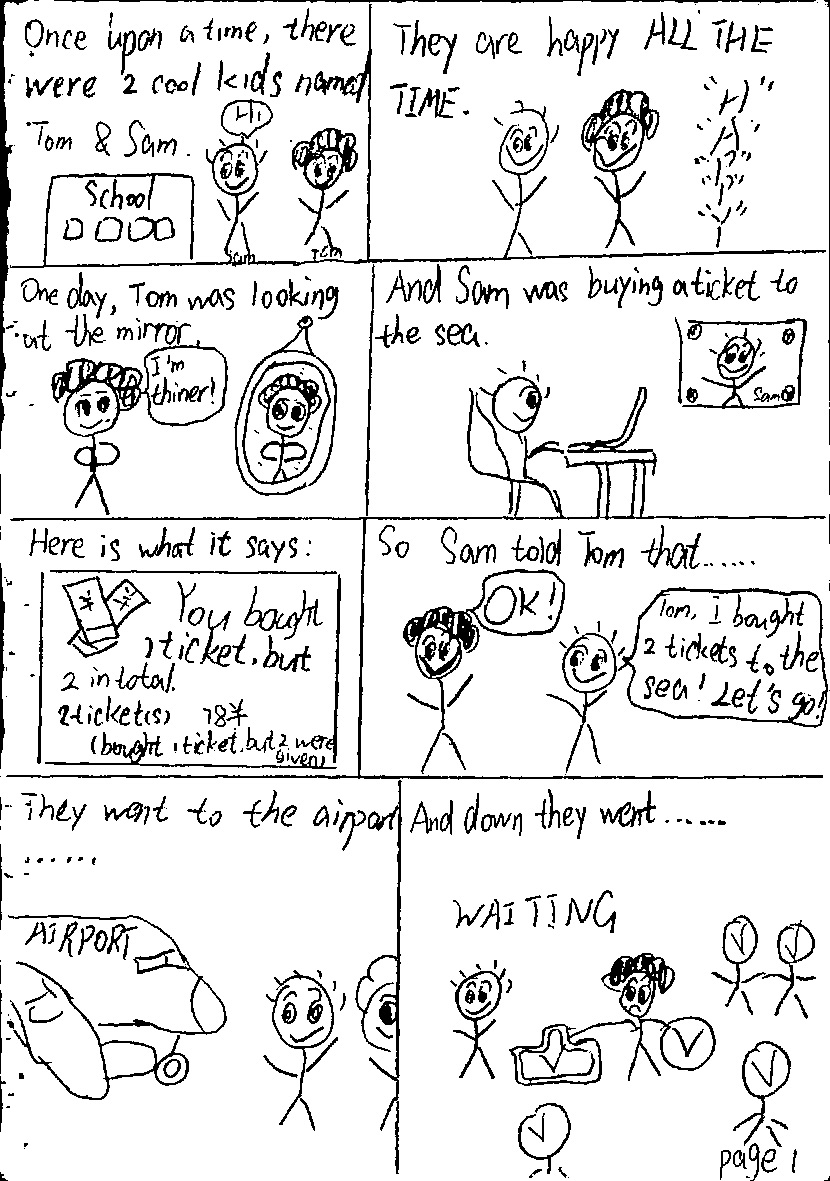 Once upon a time, there
were 2 cool kids named
Tom & Sam.
Hi
School
Sam
Tom
They are happy ALL THE
TIME.
One day, Tom was looking
at the mirror.
I'm
thiner!
And Sam was buying a ticket to
the sea.
Sam
Here is what it says:
You bought
1 ticket, but
2 in total.
2 ticket(s) 78¥
(bought 1 ticket, but 2 were
given)
So Sam told Tom that......
OK!
Tom, I bought
2 tickets to the
sea! Let's go!
They went to the airport
......
AIRPORT
And down they went......
WAITING
page 1